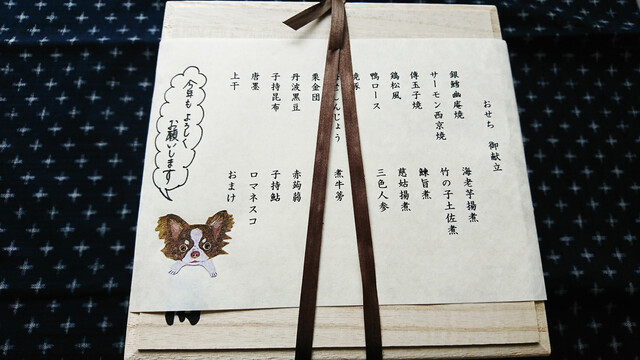 おせち 御献立
銀鱈幽庵焼 海老芋揚煮
サーモン西京焼 竹の子土佐煮
傳玉子焼 鰊旨煮
鶏松風 慈姑揚煮
鴨ロース 三色人参
しんじょう 煮牛蒡
栗金団
丹波黒豆 赤蒟蒻
子持昆布 子持鮎
唐墨 ロマネスコ
上干 おまけ
今年も よろしく
お願いします